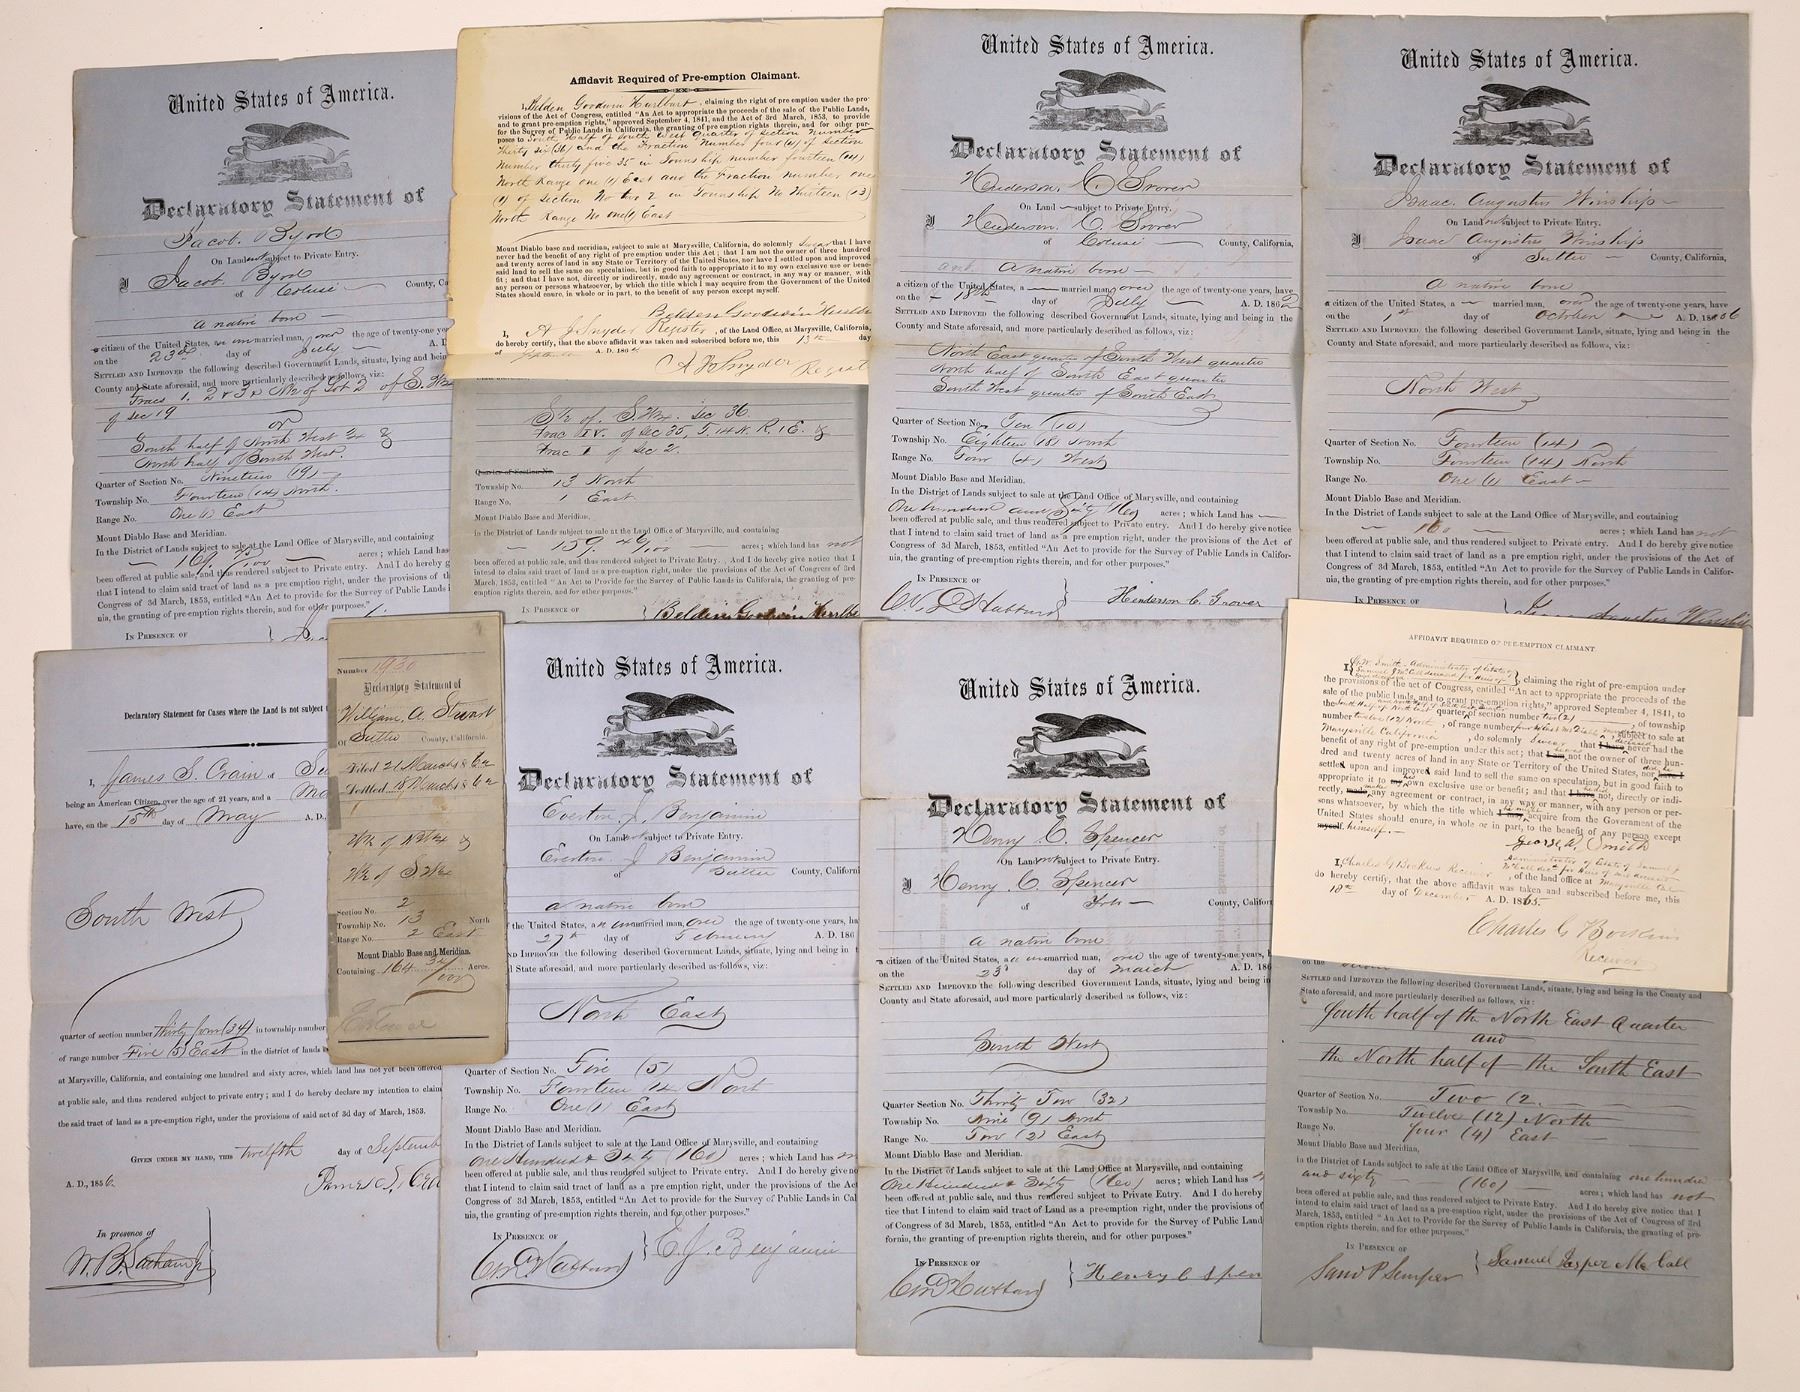 United States of America.
Declaratory Statement of
Jacob. Byrd
On Land not subject to Private Entry.
I Jacob. Byrd
of Colusi County, Ca
a native born
a citizen of the United States, a unmarried man, over the age of twenty-one yea
on the 23d day of July A. D.
SETTLED AND IMPROVED the following described Government Lands, situate, lying and bein
County and State aforesaid, and more particularly described as follows, viz:
of Sec 19
or
South half of North West 1/4 &
North half of South West.
Quarter of Section No. Nineteen (19)
Township No. Fourteen (14) North.
Range No. One (1) East
Mount Diablo Base and Meridian.
In the District of Lands subject to sale at the Land Office of Marysville, and containing
169. 75/100 acres; which Land has
been offered at public sale, and thus rendered subject to Private entry. And I do hereby g
that I intend to claim said tract of land as a pre emption right, under the provisions of th
Congress of 3d March, 1853, entitled "An Act to provide for the Survey of Public Lands i
nia, the granting of pre-emption rights therein, and for other purposes."
IN PRESENCE OF
Affidavit Required of Pre-emption Claimant.
I, Belden Goodwin Hurlburt, claiming the right of pre emption under the pro-
visions of the Act of Congress, entitled "An Act to appropriate the proceeds of the sale of the Public Lands,
and to grant pre-emption rights," approved September 4, 1841, and the Act of 3rd March, 1853, to provide
for the Survey of Public Lands in California, the granting of pre-emption rights therein, and for other pur-
poses to South Half of South West quarter of Section Number
thirty six (36) and the Fraction Number four (4) of Section
Number thirty five 35 in Township number fourteen (14)
North Range one (1) East and the Fraction Number one
(1) of Section No two 2 in Township No Thirteen (13)
North Range No one (1) East
Mount Diablo base and meridian, subject to sale at Marysville, California, do solemnly swear that I have
never had the benefit of any right of pre emption under this Act; that I am not the owner of three hundred
and twenty acres of land in any State or Territory of the United States, nor have I settled upon and improved
said land to sell the same on speculation, but in good faith to appropriate it to my own exclusive use or bene-
fit; and that I have not, directly or indirectly, made any agreement or contract, in any way or manner, with
any person or persons whatsoever, by which the title which I may acquire from the Government of the United
States should enure, in whole or in part, to the benefit of any person except myself.
Belden Goodwin
I, A J Snyder Register, of the Land Office, at Marysville, California,
do hereby certify, that the above affidavit was taken and subscribed before me, this 13th day
of A. D. 186
A J Snyder Regist
S 1/2 of S.W 1/4. Sec 36.
Frac IV. of Sec 35, T. 14 N. R. 1 E. &
Frac I of Sec 2.
Quarter of Section No.
Township No. 13 North
Range No. 1 East
Mount Diablo Base and Meridian.
In the District of Lands subject to sale at the Land Office of Marysville, and containing
159. 49/100 acres; which land has not
been offered at public sale, and thus rendered subject to Private entry. And I do hereby give notice that I
intend to claim said tract of land as a pre-emption right, under the provisions of the Act of Congress of 3rd
March, 1853, entitled "An Act to Provide for the Survey of Public Lands in California, the granting of pre-
emption rights therein, and for other purposes."
IN PRESENCE OF
Belden Goodwin
United States of America.
Declaratory Statement of
Henderson. C. Grover
On Land subject to Private Entry.
I Henderson. C. Grover
of Colusi County, California,
a native born
a citizen of the United States, a married man, over the age of twenty-one years, have
on the 18th day of July A. D. 1862
SETTLED AND IMPROVED the following described Government Lands, situate, lying and being in the
County and State aforesaid, and more particularly described as follows, viz:
North East quarter of South West quarter
North half of South East quarter
South West quarter of South East
Quarter of Section No. Ten (10)
Township No. Eighteen (18) North
Range No. Four (4) West
Mount Diablo Base and Meridian.
In the District of Lands subject to sale at the Land Office of Marysville, and containing
One hundred and Sixty 160 acres; which Land has
been offered at public sale, and thus rendered subject to Private entry. And I do hereby give notice
that I intend to claim said tract of land as a pre emption right, under the provisions of the Act of
Congress of 3d March, 1853, entitled "An Act to provide for the Survey of Public Lands in Califor-
nia, the granting of pre-emption rights therein, and for other purposes."
IN PRESENCE OF
Henderson C. Grover
United States of America.
Declaratory Statement of
Isaac. Augustus Winship
On Land not subject to Private Entry.
I Isaac Augustus Winship
of Sutter County, California,
a native born
a citizen of the United States, a married man, over the age of twenty-one years, have
on the 1st day of October A. D.
SETTLED AND IMPROVED the following described Government Lands, situate, lying and being in the
County and State aforesaid, and more particularly described as follows, viz:
North West
Quarter of Section No. Fourteen (14)
Township No. Fourteen (14) North
Range No. One (1) East
Mount Diablo Base and Meridian.
In the District of Lands subject to sale at the Land Office of Marysville, and containing
160 acres; which Land has not
been offered at public sale, and thus rendered subject to Private entry. And I do hereby give notice
that I intend to claim said tract of land as a pre emption right, under the provisions of the Act of
Congress of 3d March, 1853, entitled "An Act to provide for the Survey of Public Lands in Califor-
nia, the granting of pre-emption rights therein, and for other purposes."
IN PRESENCE OF
Isaac Augustus Winship
Declaratory Statement for Cases where the Land is not subject t
I, James S. Crain of Su
being an American Citizen, over the age of 21 years, and a
have, on the 15th day of May A. D.,
South West
quarter of section number thirty four (34) in township number
of range number Five (5) East in the district of lands
at Marysville, California, and containing one hundred and sixty acres, which land has not yet been offered
at public sale, and thus rendered subject to private entry; and I do hereby declare my intention to claim
the said tract of land as a pre-emption right, under the provisions of said act of 3d day of March, 1853.
GIVEN UNDER MY HAND, THIS twelfth day of Septemb
A. D., 1856.
James S. Cra
In presence of
Number 1930
Declaratory Statement of
William, A. Stewart
Of Sutter County, California.
Filed 21 March
Settled 18 March
W 1/2 of N W 1/4 &
W 1/2 of S W 1/4
Section No. 2
Township No. 13 North
Range No. 2 East
Mount Diablo Base and Meridian.
Containing 164 34/100 Acres.
United States of America.
Declaratory Statement of
Everton J. Benjamin
On Land not subject to Private Entry.
Everton. J. Benjamin
of Sutter County, Californi
a native born
f the United States, a unmarried man, over the age of twenty-one years, ha
27th day of February A. D. 186
ND IMPROVED the following described Government Lands, situate, lying and being in t
d State aforesaid, and more particularly described as follows, viz:
North East
Quarter of Section No. Five (5)
Township No. Fourteen 14 North
Range No. One (1) East
Mount Diablo Base and Meridian.
In the District of Lands subject to sale at the Land Office of Marysville, and containing
One Hundred & Sixty (160) acres; which Land has
been offered at public sale, and thus rendered subject to Private entry. And I do hereby give no
that I intend to claim said tract of land as a pre emption right, under the provisions of the Act
Congress of 3d March, 1853, entitled "An Act to provide for the Survey of Public Lands in Cal
nia, the granting of pre-emption rights therein, and for other purposes."
IN PRESENCE OF
E. J. Benjamin
United States of America.
Declaratory Statement of
Henry C. Spencer
On Land not subject to Private Entry.
I Henry. C. Spencer
of Yolo County, Californ
a native born
a citizen of the United States, a unmarried man, over the age of twenty-one years,
on the 23d day of March A. D. 186
SETTLED AND IMPROVED the following described Government Lands, situate, lying and being in
County and State aforesaid, and more particularly described as follows, viz:
South West
Quarter Section No. Thirty Two (32)
Township No. Nine (9) North
Range No. Two (2) East
Mount Diablo Base and Meridian.
In the District of Lands subject to sale at the Land Office at Marysville, and containing
One Hundred & Sixty (160) acres; which Land has
been offered at public sale, and thus rendered subject to Private Entry. And I do hereby
tice that I intend to claim said tract of land as a pre-emption right, under the provisions of
of Congress of 3d March, 1853, entitled "An Act to provide for the Survey of Public Land
fornia, the granting of pre-emption rights therein, and for other purposes."
IN PRESENCE OF
Henry C Spen
AFFIDAVIT REQUIRED OF PRE-EMPTION CLAIMANT.
I, G. W. Smith - Administrator of Estate of
Samuel J McCall deceased for Heirs of
, claiming the right of pre-emption under
the provisions of the act of Congress, entitled "An act to appropriate the proceeds of the
sale of the public lands, and to grant pre-emption rights," approved September 4, 1841, to
the South Half of North East quarter of section number two (2), of township
number twelve (12) North, of range number four, subject to sale at
Marysville California, do solemnly swear that I have never had the
benefit of any right of pre-emption under this act; that I am not the owner of three hun-
dred and twenty acres of land in any State or Territory of the United States, nor have I
settled upon and improved said land to sell the same on speculation, but in good faith to
appropriate it to my own exclusive use or benefit; and that I have not, directly or indi-
rectly, made any agreement or contract, in any way or manner, with any person or per-
sons whatsoever, by which the title which I may acquire from the Government of the
United States should enure, in whole or in part, to the benefit of any person except
myself. himself.
George W. Smith
Administrator of Estate of Samuel J
I, Charles G Bockius Receiver, of the land office at Marysville Cal
do hereby certify, that the above affidavit was taken and subscribed before me, this
18th day of December A. D. 1865.
Charles G Bockius
Receiver
on the
SETTLED AND IMPROVED the following described Government Lands, situate, lying and being in the County and
State aforesaid, and more particularly described as follows, viz:
South half of the North East Quarter
and
the North half of the South East
Quarter of Section No. Two (2.
Township No. Twelve (12) North
Range No. four (4) East
Mount Diablo Base and Meridian,
In the District of Lands subject to sale at the Land Office of Marysville, and containing one hundred
and sixty (160) acres; which land has not
been offered at public sale, and thus rendered subject to Private Entry. And I do hereby give notice that I
intend to claim said tract of land as a pre-emption right, under the provisions of the Act of Congress of 3rd
March, 1853, entitled "An Act to Provide for the Survey of Public Lands in California, the granting of pre-
emption rights therein, and for other purposes."
IN PRESENCE OF
Samuel Jasper McCall